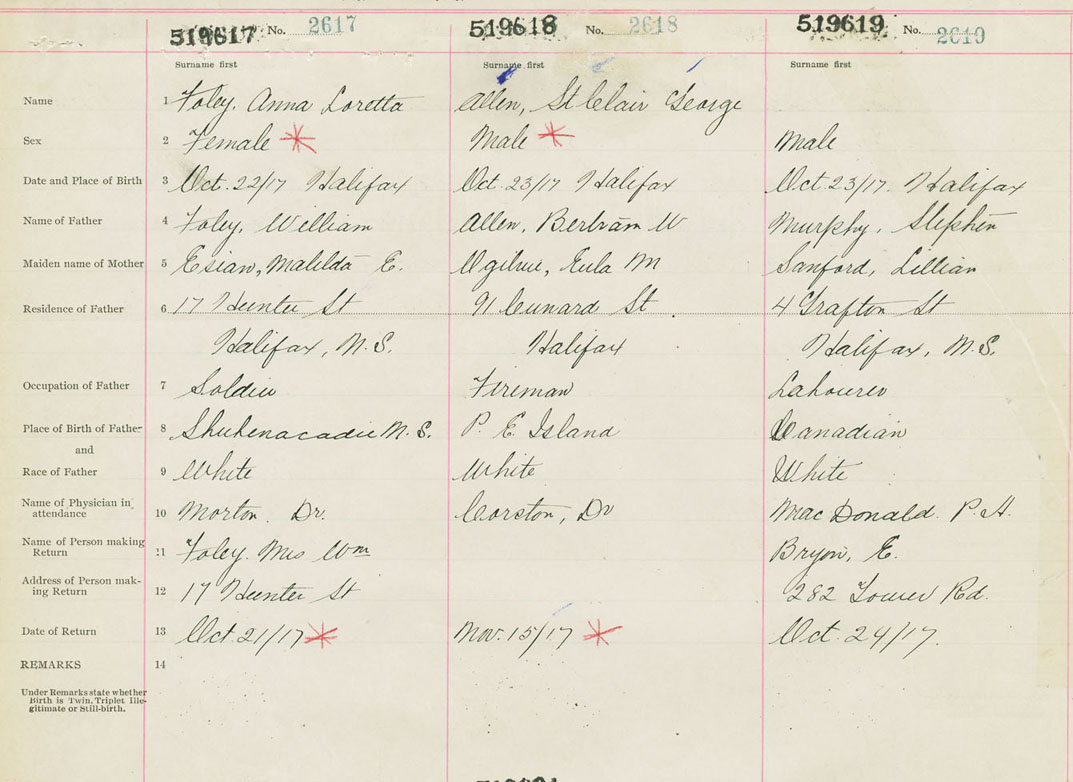 519617 No. 2617 519618 No. 2618 519619 No. 2619
Surname first Surname first Surname first
Name 1 Foley, Anna Loretta Allen, St Clair George
Sex 2 Female * Male * Male
Date and Place of Birth 3 Oct. 22/17 Halifax Oct. 23/17 Halifax Oct. 23/17. Halifax
Name of Father 4 Foley, William Allen, Bertram W Murphy, Stephen
Maiden name of Mother 5 Esian, Matilda E. Ogilvie, Eula M Sanford, Lillian
Residence of Father 6 17 Hunter St 91 Cunard St 4 Grafton St
Halifax, N.S. Halifax Halifax, N.S.
Occupation of Father 7 Soldier Fireman Labourer
Place of Birth of Father 8 Shubenacadie N.S. P. E. Island Canadian
and
Race of Father 9 White White White
Name of Physician in
attendance 10 Morton. Dr. Corston, Dr MacDonald. P. A.
Name of Person making
Return 11 Foley. Mrs Wm Bryon, E.
Address of Person mak-
ing Return 12 17 Hunter St 282 Tower Rd.
Date of Return 13 Oct. 21/17 * Nov. 15/17 * Oct. 24/17.
REMARKS 14
Under Remarks state whether
Birth is Twin, Triplet Ille-
gitimate or Still-birth.